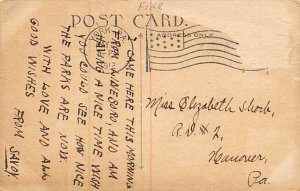 Fire
POST CARD.
ADDRESS ONLY
I CAME HERE THIS MORNING
FROM LINEBORO AND AM
HAVING A NICE TIME. WISH
YOU COULD SEE HOW NICE
THE PARKS ARE NOW.
WITH LOVE AND ALL
GOOD WISHES
FROM
Miss Elizabeth
R.D. # 2,
Hanover,
Pa.